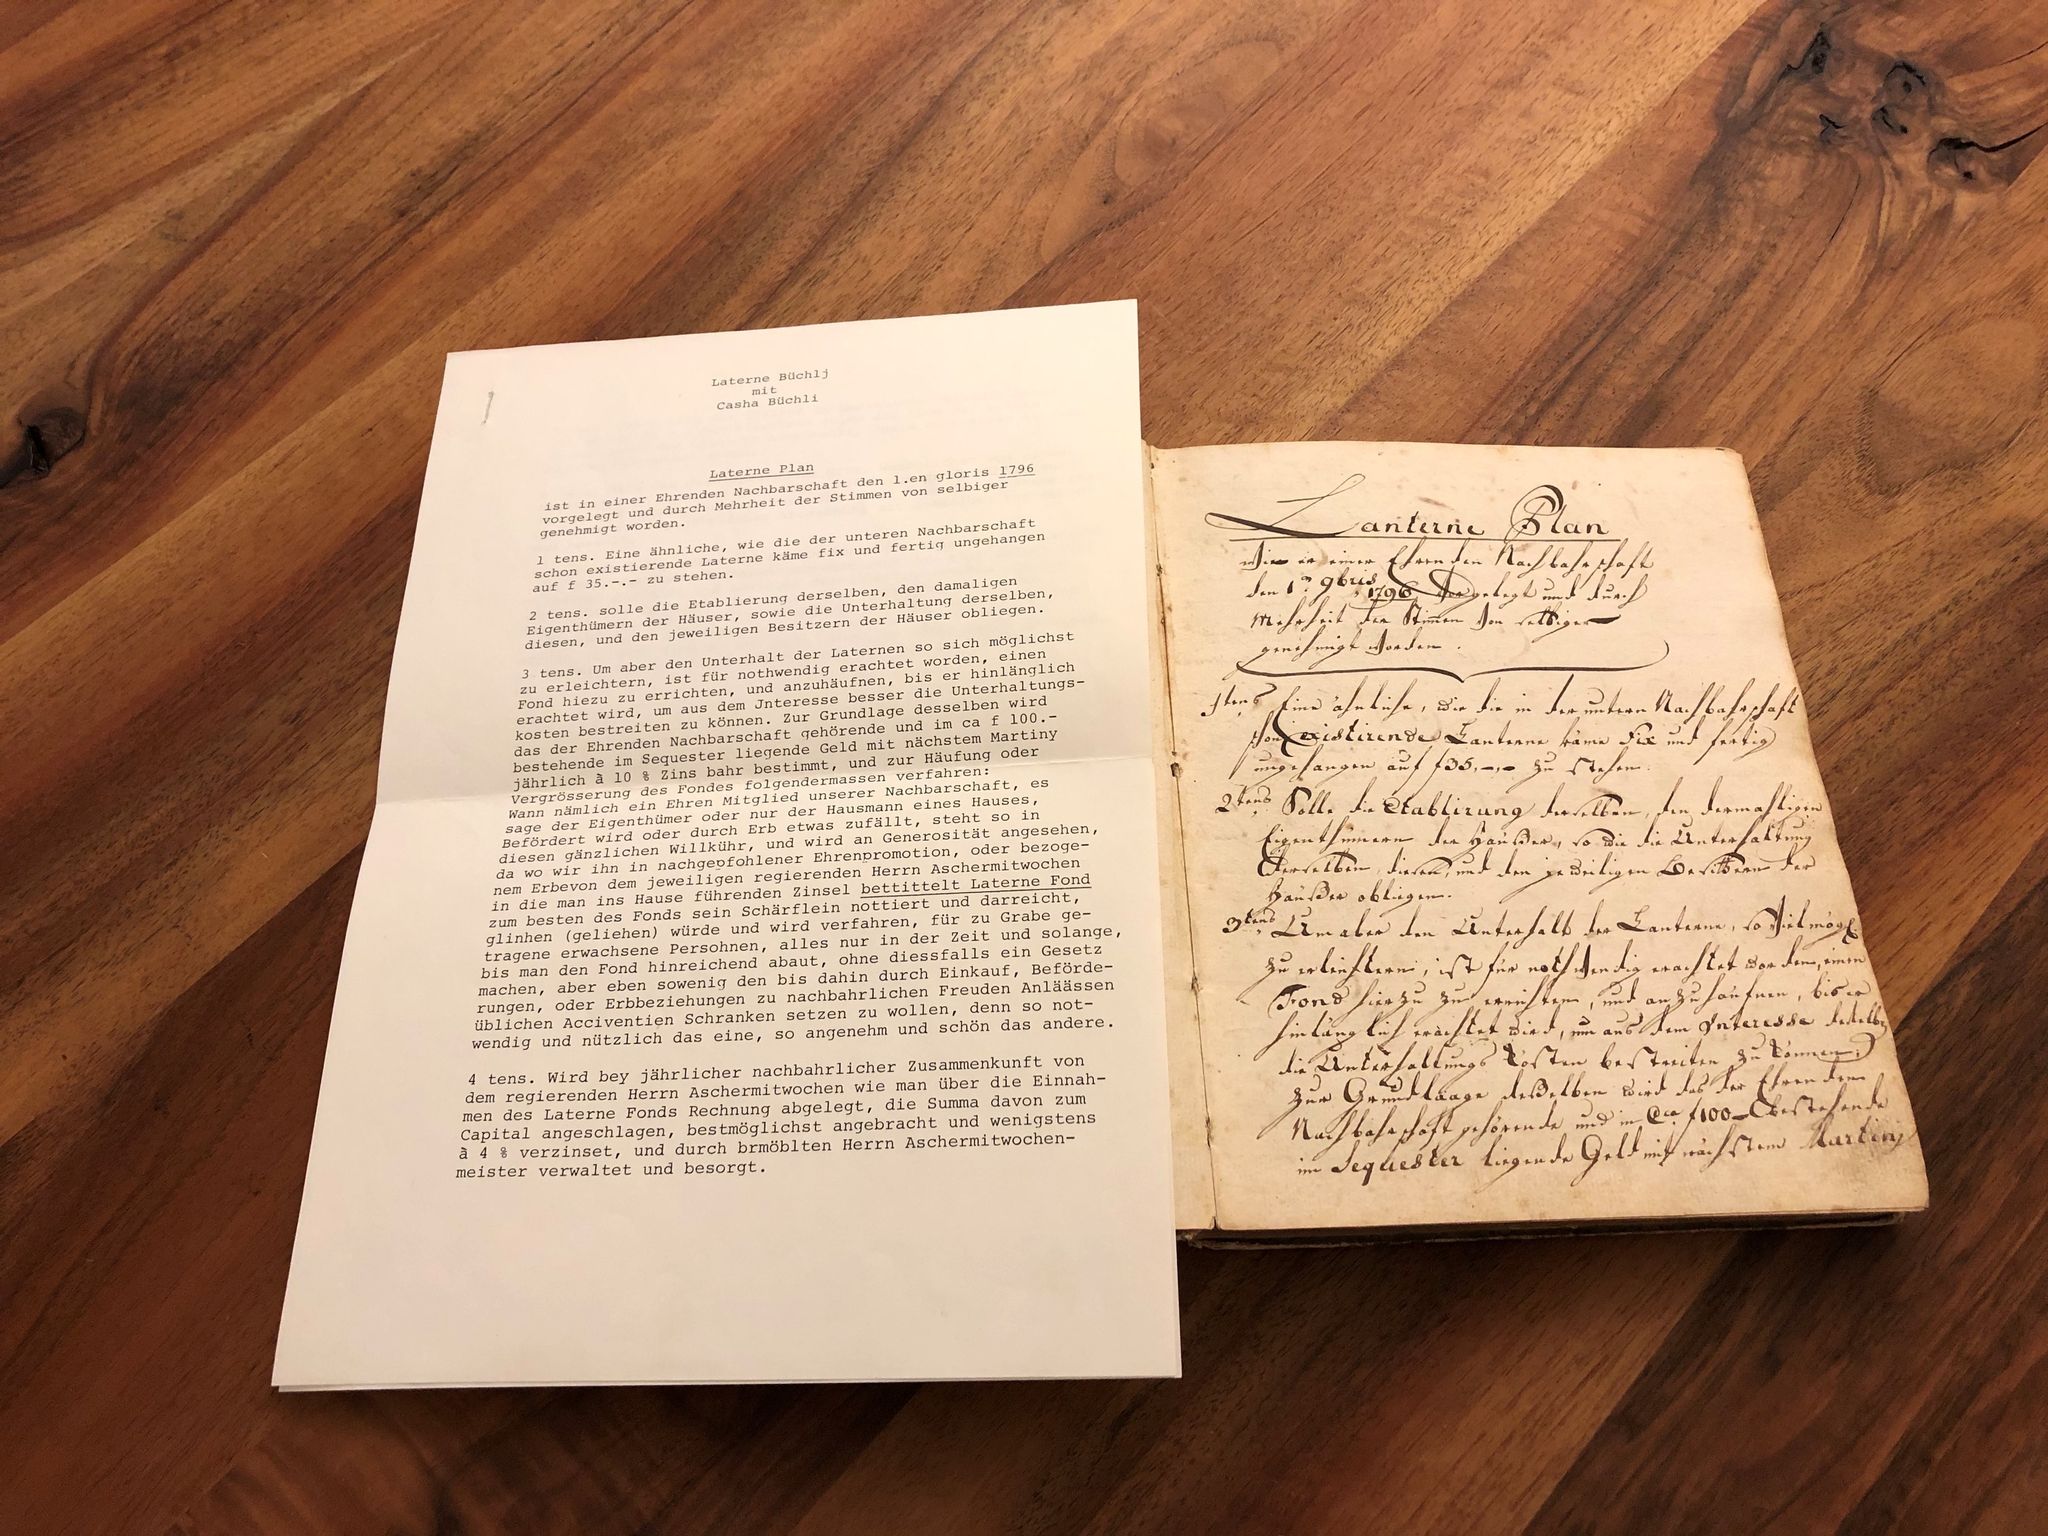 Laterne Büchlj
mit
Casha Büchli
Laterne Plan
ist in einer Ehrenden Nachbarschaft den 1.en gloris 1796
vorgelegt und durch Mehrheit der Stimmen von selbiger
genehmigt worden.
1 tens. Eine ähnliche, wie die der unteren Nachbarschaft
schon existierende Laterne käme fix und fertig ungehangen
auf f 35.-.- zu stehen.
2 tens. solle die Etablierung derselben, den damaligen
Eigenthümern der Häuser, sowie die Unterhaltung derselben,
diesen, und den jeweiligen Besitzern der Häuser obliegen.
3 tens. Um aber den Unterhalt der Laternen so sich möglichst
zu erleichtern, ist für nothwendig erachtet worden, einen
Fond hiezu zu errichten, und anzuhäufnen, bis er hinlänglich
erachtet wird, um aus dem Jnteresse besser die Unterhaltungs-
kosten bestreiten zu können. Zur Grundlage desselben wird
das der Ehrenden Nachbarschaft gehörende und im ca f 100.-
bestehende im Sequester liegende Geld mit nächstem Martiny
jährlich à 10 % Zins bahr bestimmt, und zur Häufung oder
Vergrösserung des Fondes folgendermassen verfahren:
Wann nämlich ein Ehren Mitglied unserer Nachbarschaft, es
sage der Eigenthümer oder nur der Hausmann eines Hauses,
Befördert wird oder durch Erb etwas zufällt, steht so in
diesen gänzlichen Willkühr, und wird an Generosität angesehen,
da wo wir ihn in nachgepfohlener Ehrenpromotion, oder bezoge-
nem Erbevon dem jeweiligen regierenden Herrn Aschermittwochen
in die man ins Hause führenden Zinsel bettittelt Laterne Fond
zum besten des Fonds sein Schärflein nottiert und darreicht,
glinhen (geliehen) würde und wird verfahren, für zu Grabe ge-
tragene erwachsene Persohnen, alles nur in der Zeit und solange,
bis man den Fond hinreichend abaut, ohne diessfalls ein Gesetz
machen, aber eben sowenig den bis dahin durch Einkauf, Beförde-
rungen, oder Erbbeziehungen zu nachbahrlichen Freuden Anläässen
üblichen Acciventien Schranken setzen zu wollen, denn so not-
wendig und nützlich das eine, so angenehm und schön das andere.
4 tens. Wird bey jährlicher nachbahrlicher Zusammenkunft von
dem regierenden Herrn Aschermitwochen wie man über die Einnah-
men des Laterne Fonds Rechnung abgelegt, die Summa davon zum
Capital angeschlagen, bestmöglichst angebracht und wenigstens
à 4 % verzinset, und durch brmöblten Herrn Aschermitwochen-
meister verwaltet und besorgt.
Lanterne Plan
Wie er einer Ehrenden Nachbahrschaft
den 1ⁿ 9bris 1796 vorgelegt und durch
Mehrheit der Stimmen von selbiger
genehmigt worden.
1tens Eine ähnliche, wie die in der untern Nachbahrschaft
schon existirende Lanterne käme fix und fertig
ungehangen auf f35.-.- zu stehen.
2tens Solle die Etablirung derselben, den dermahligen
Eigenthümern der Häußer, so wie die Unterhaltung
derselben, diesen, und den jeweiligen Besitzern der
Häußer obliegen.
3tens Um aber den Unterhalt der Lanterne, so viel mögl.
zu erleichtern, ist für nothwendig erachtet worden, einen
Fond hierzu zu errichten, und anzuhäufnen, bis er
hinlänglich erachtet wird, um aus dem Interesse
die Unterhaltungs Kosten bestreiten zu können.
Zur Grundlaage deßelben wird das der Ehrenden
Nachbahrschaft gehörende und in Cca f100.- bestehende
im Sequester liegende Geld mit nächstem Martiny